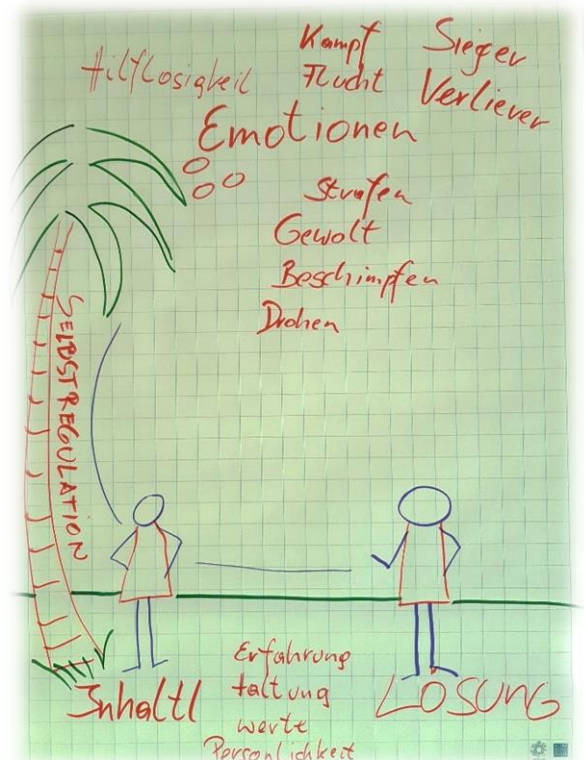 Hilflosigkeit
Kampf
Flucht
Sieger
Verlierer
Emotionen
Strafen
Gewalt
Beschimpfen
Drohen
SELBSTREGULATION
Inhaltl
Erfahrung
Haltung
werte
Persönlichkeit
LÖSUNG